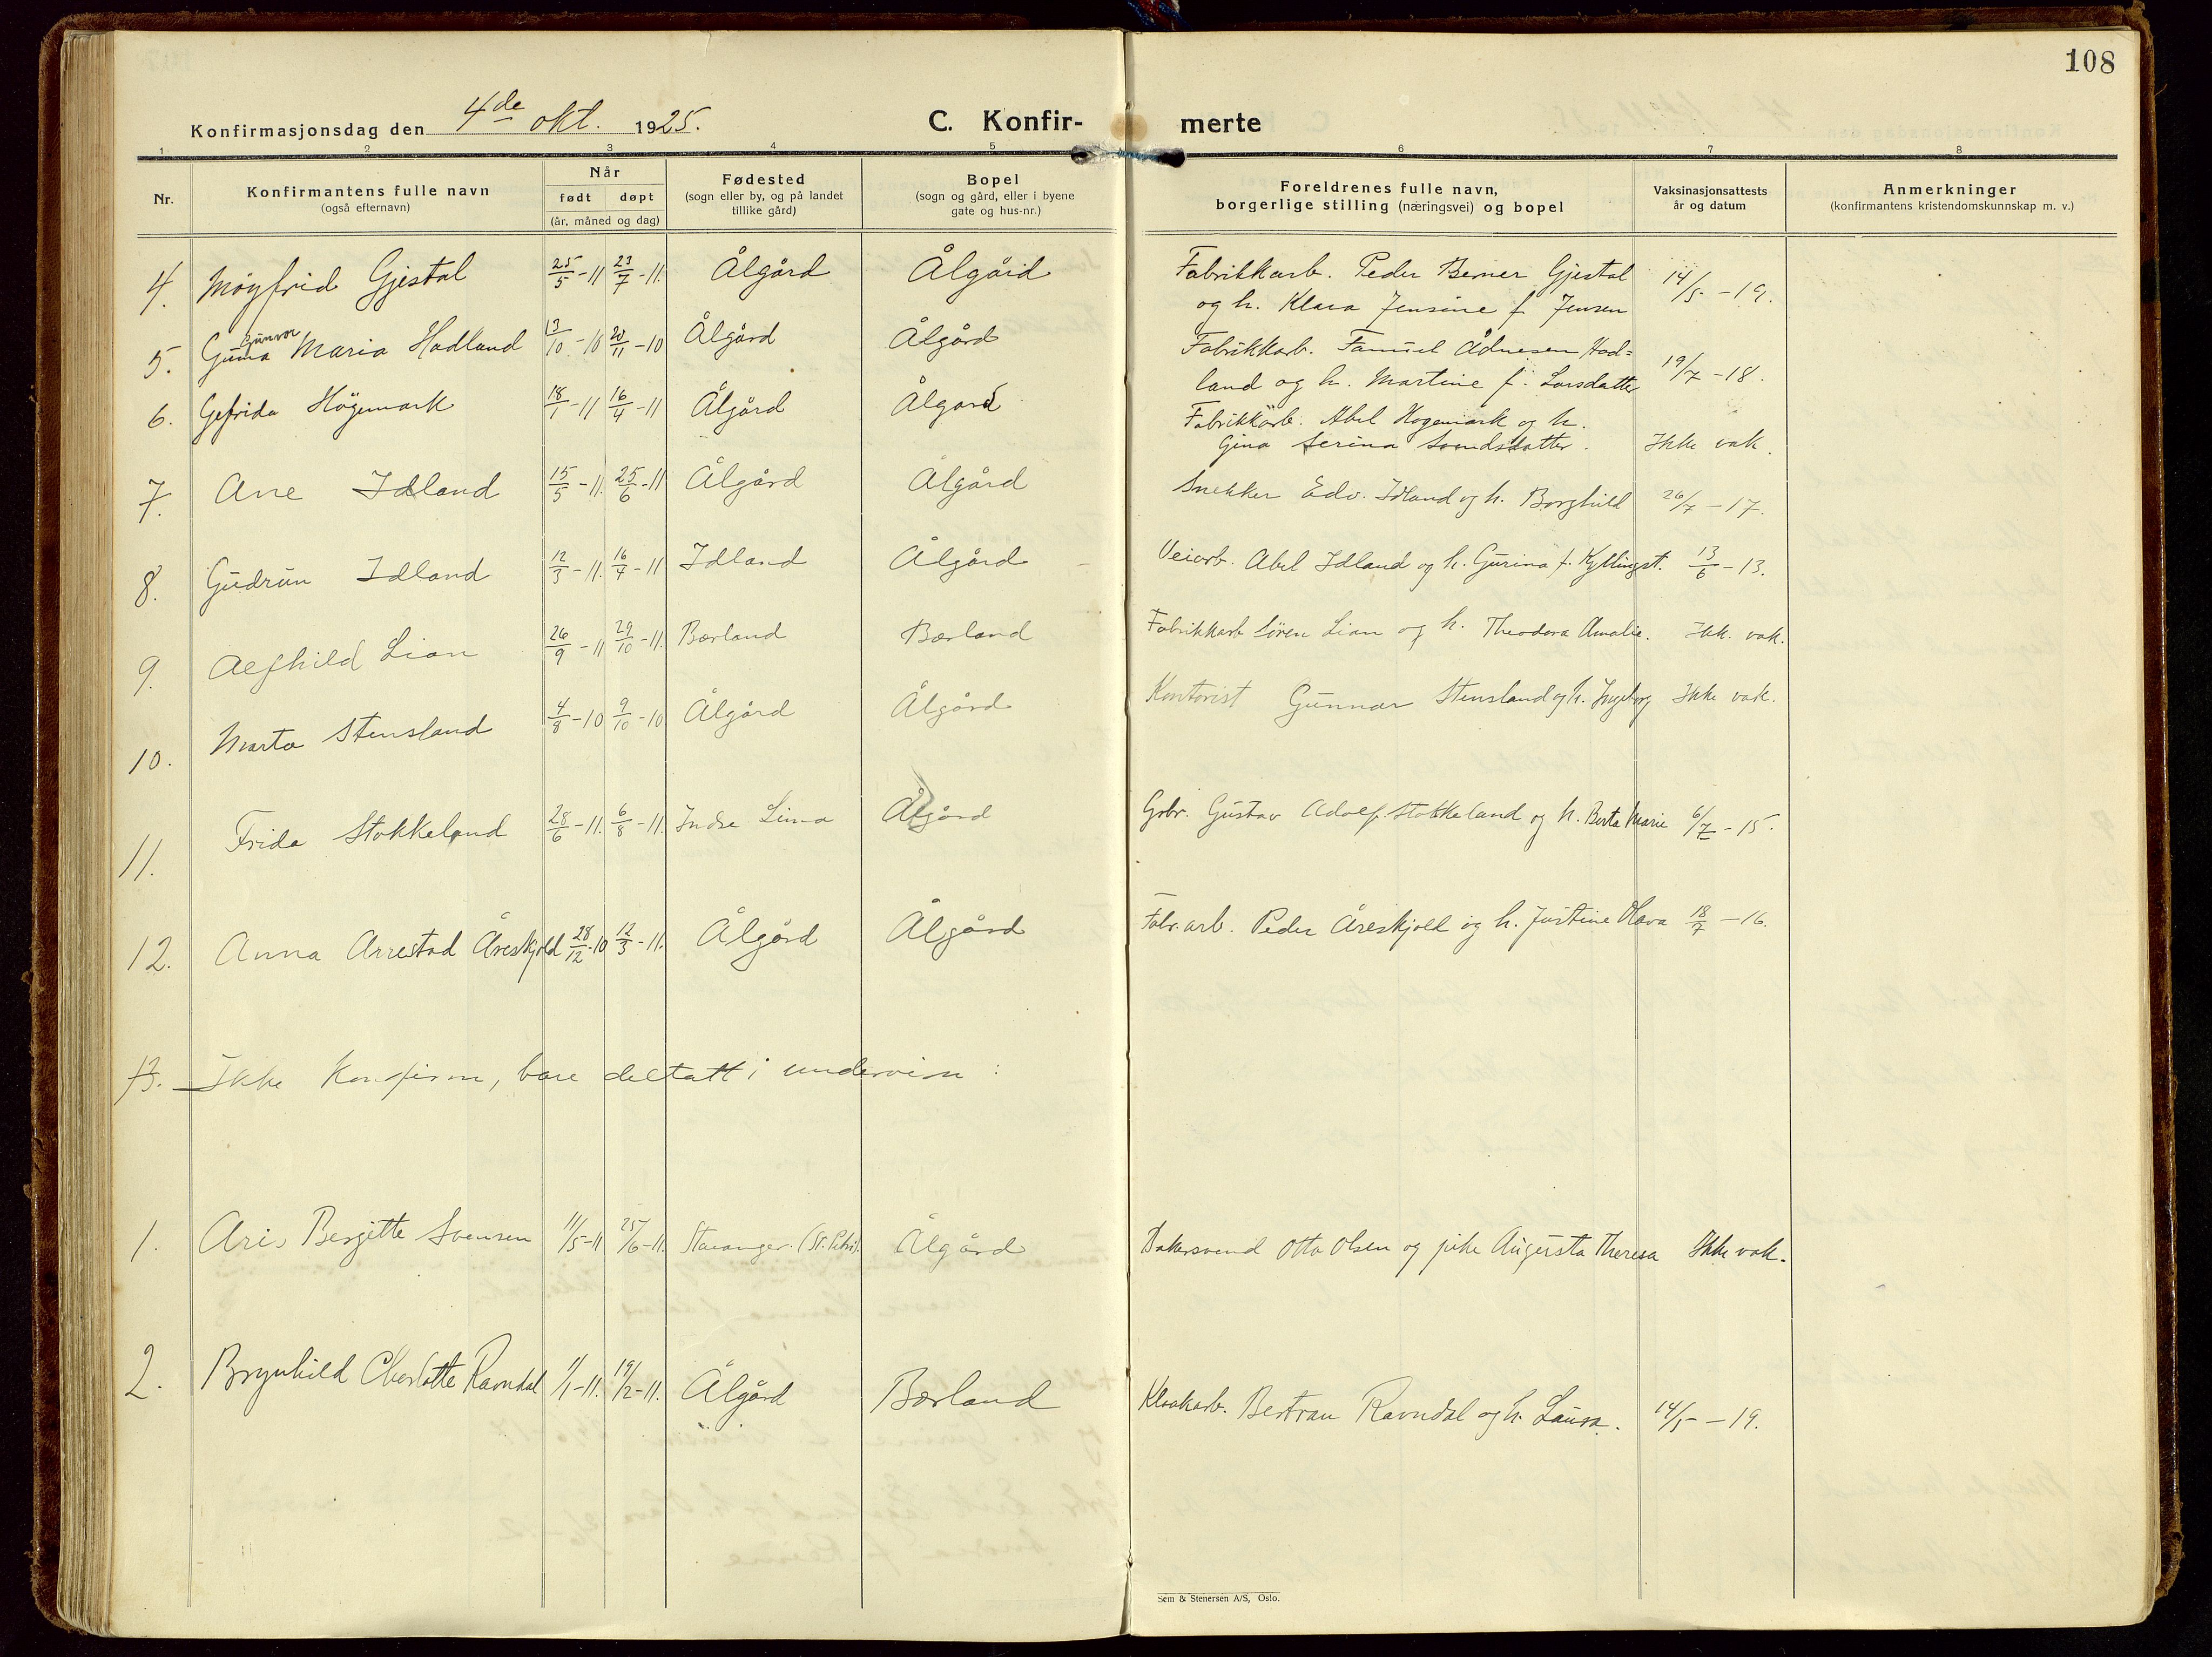 108
Konfirmasjonsdag den 4de okt. 1925.
C. Konfir- merte
1 2 3 4 5 6 7 8
Nr.
Konfirmantens fulle navn
(også efternavn)
Når
født døpt
(år, måned og dag)
Fødested
(sogn eller by, og på landet
tillike gård)
Bopel
(sogn og gård, eller i byene
gate og hus-nr.)
Foreldrenes fulle navn,
borgerlige stilling (næringsvei) og bopel
Vaksinasjonsattests
år og datum
Anmerkninger
(konfirmantens kristendomskunnskap m. v.)
4. Møyfrid Gjestal 25/5-11 23/7-11. Ålgård Ålgård Fabrikkarb. Peder Berner Gjestal 14/5-19.
og h. Klara Jensine f. Jensen
Gunvor
5. Guma Maria Hadland 13/10-10 20/11-10 Ålgård Ålgård Fabrikkarb. Tamuel Ådnesen Had=
land og h. Martine f. Larsdatter 19/7-18.
6. Gefrida Høgemark 18/1-11 16/4-11 Ålgård Ålgård Fabrikkarb. Abel Høgemark og h.
Gina Serina Svendsdatter. Ikke vak.
7. Ane Idland 15/5-11. 25/6-11 Ålgård Ålgård Snekker Edv. Idland og h. Borghild 26/7-17.
8. Gudrun Idland 12/3-11. 16/4-11 Idland Ålgård Veiarb. Abel Idland og h. Gurina f. Kyllingst. 13/6-13.
9. Alfhild Lian 26/9-11 29/10-11. Bærland Bærland Fabrikkarb Søren Lian og h. Theodora Amalie. Ikk. vak.
10. Marta Stensland 4/8-10 9/10-10 Ålgård Ålgård Kontorist Gunnar Stensland og h. Ingeborg Ikke vak.
11. Frida Stokkeland 28/6-11. 6/8-11. Indre Lima Ålgård Grbr. Gustav Adolf Stokkeland og h. Berta Marie 6/7-15.
12. Anna Arrestad Åreskjold 28/12-10 12/3-11. Ålgård Ålgård Fabr.arb. Peder Åreskjold og h. Justine Olava 18/7-16.
13. Ikke Konfirm, bare deltatt i undervisn:
1. Aris Bergitte Svensen 11/5-11 25/6-11. Stavanger. (St. Petri). Ålgård Bakersvend Otto Olsen og pike Augusta Theresa Ikke vak.
2. Brynhild Charlotte Ravndal 1/1-11. 19/2-11. Ålgård Bærland Kloakarb. Bertran Ravndal og h. Laura. 14/5-19.
Sem & Stenersen A/S, Oslo.